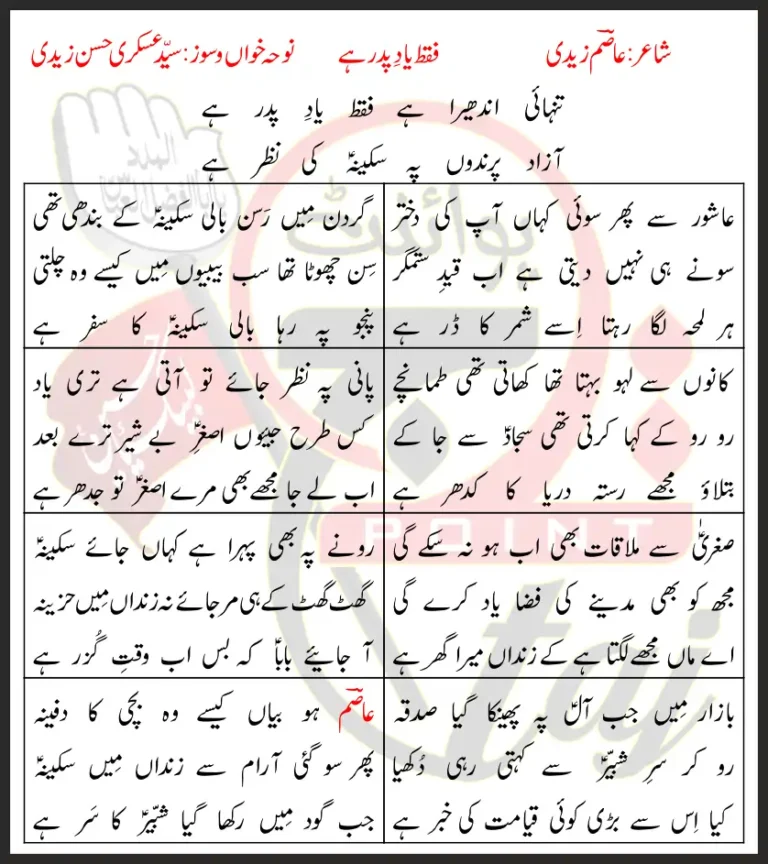 شاعر: عاصمؔ زیدی فقط یادِ پدر ہے نوحہ خواں و سوز: سیّد عسکری حسن زیدی
تنہائی اندھیرا ہے فقط یادِ پدر ہے
آزاد پرندوں پہ سکینہؑ کی نظر ہے
عاشور سے پھر سوئی کہاں آپ کی دختر
سونے ہی نہیں دیتی ہے اب قیدِ ستمگر
ہر لمحہ لگا رہتا اِسے شمر کا ڈر ہے
گردن مِیں رَسن بالی سکینہؑ کے بندھی تھی
سِن چھوٹا تھا سب بیبیوں مِیں کیسے وہ چلتی
پنجو پہ رہا بالی سکینہؑ کا سفر ہے
کانوں سے لہو بہتا تھا کھاتی تھی طمانچے
رو رو کے کہا کرتی تھی سجادؑ سے جا کے
بتلاؤ مجھے رستہ دریا کا کدھر ہے
پانی پہ نظر جائے تو آتی ہے تری یاد
کس طرح جیئوں اصغرِؑ بے شیر ترے بعد
اب لے جا مجھے بھی مرے اصغرؑ تو جدھر ہے
صغریٰؑ سے ملاقات بھی اب ہو نہ سَکے گی
مجھ کو بھی مدینے کی فضا یاد کرے گی
اے ماں مجھے لگتا ہے کے زنداں میرا گھر ہے
رونے پہ بھی پہرا ہے کہاں جائے سکینہؑ
گھٹ گھٹ کے ہی مر جائے نہ زنداں مِیں حزینہ
آ جایئے باباؑ کہ بس اب وقتِ گُزر ہے
بازار مِیں جب آلؑ پہ پھینکا گیا صدقہ
رو کر سرِ شبیّرؑ سے کہتی رہی دُکھیا
کیا اِس سے بڑی کوئی قیامت کی خبر ہے
عاصمؔ ہو بیاں کیسے وہ بچی کا دفینہ
پھر سو گئی آرام سے زنداں مِیں سکینہؑ
جب گود مِیں رکھا گیا شبّیرؑ کا سَر ہے
پوائنٹ
POINT
taj